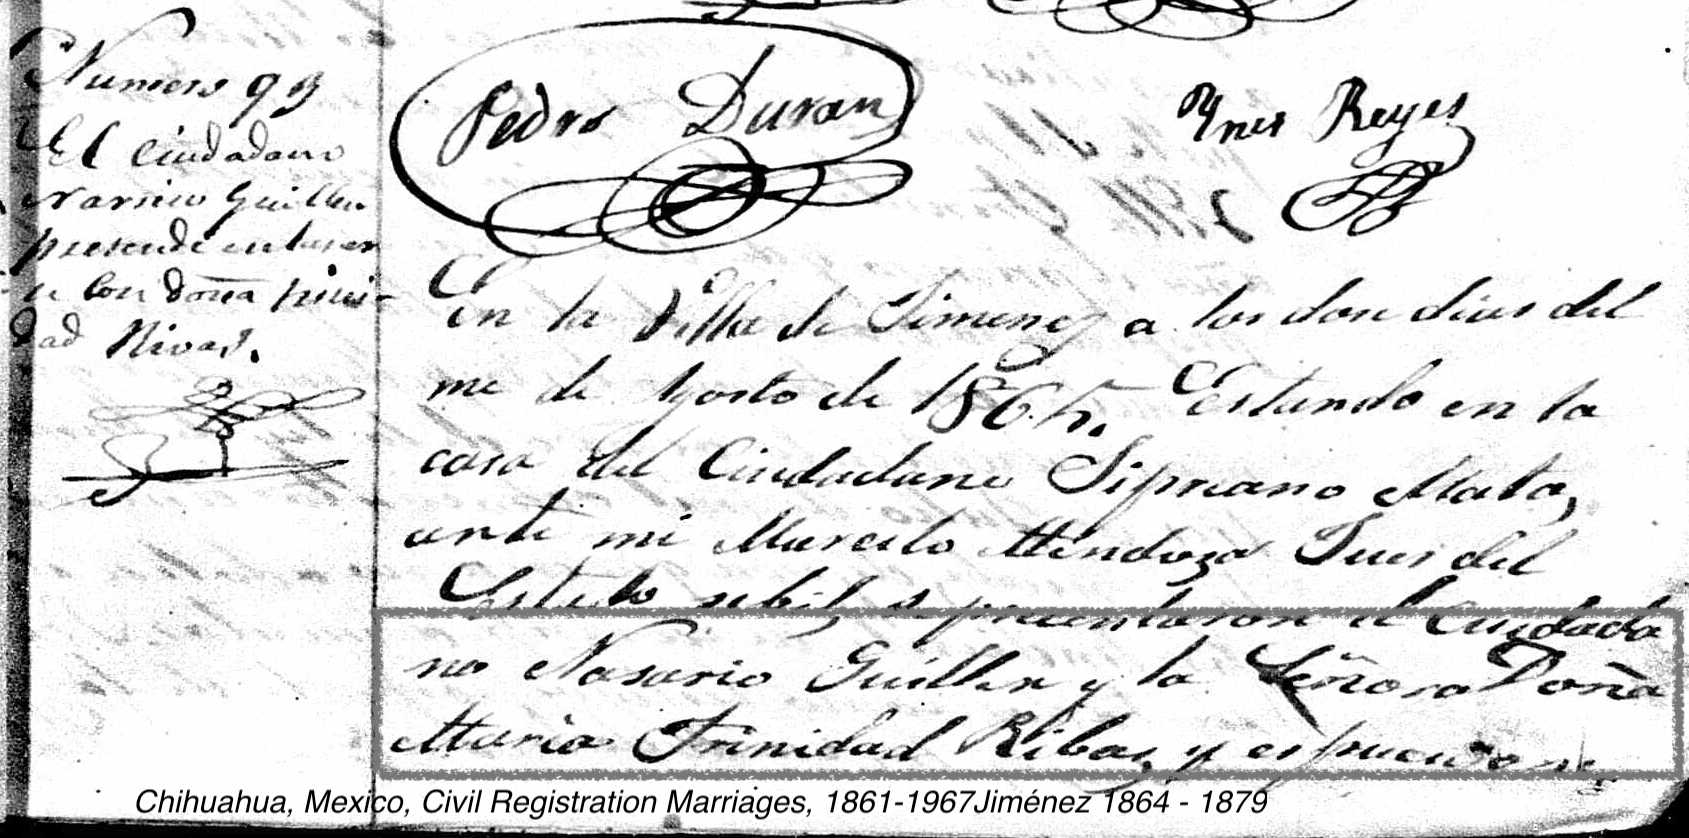 Numero 93
El Ciudadano
Narsiio Guillen
con doña
dad Rivas.
Pedro Duran
Ynes Reyes
En la Villa de Jimenez a los dose dias del
me de Agosto de 1865. Estando en la
casa del Ciudadano Sipriano Mata,
ante mi Marcelo Mendoza Jues del
Estado sebil se presentaron el Ciudada
no Nasario Guillen y la Señora Doña
Maria Trinidad Ribas, y
Chihuahua, Mexico, Civil Registration Marriages, 1861-1967Jiménez 1864 - 1879